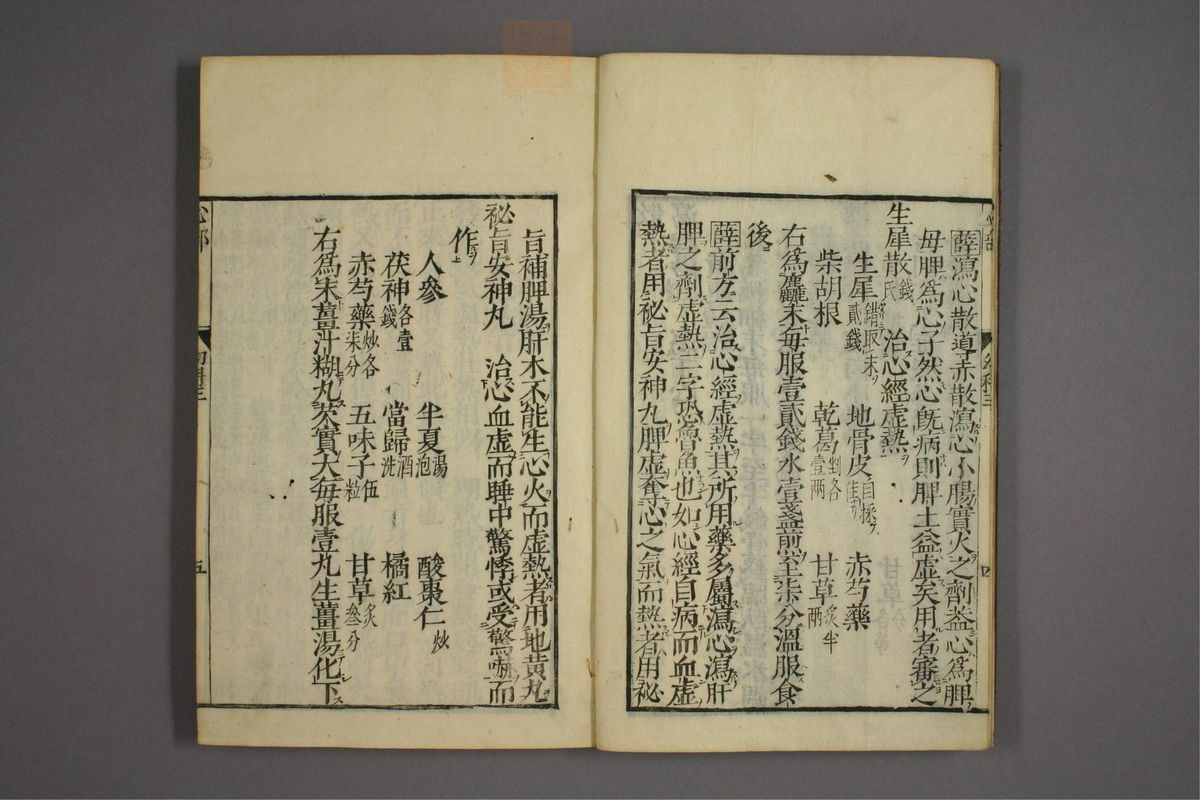 薛瀉心散導赤散瀉心小腸實火之劑盖心爲脾
母脾爲心子然心旣病則脾土益虛矣用者審之
生犀散錢氏 治心經虛熱
生犀鎊取末貳錢 地骨皮自採佳 赤芍藥
柴胡根 乾葛剉各壹兩 甘草炙半兩
右爲麤末每服壹貳錢水壹盞煎至柒分溫服食
後
薛前方云治心經虛熱其所用藥多屬瀉心瀉肝
脾之劑虛熱二字恐魯魚也如心經自病而血虛
熱者用祕旨安神丸脾虛奪心之氣而熱者用祕
旨補脾湯肝木不能生心火而虛熱者用地黄丸
祕旨安神丸 治心血虛而睡中驚悸或受驚嚇而
作
人參 半夏湯泡 酸棗仁炒
茯神各壹錢 當歸酒洗 橘紅
赤芍藥炒各柒分 五味子伍粒 甘草炙叄分
右爲末薑汁糊丸芡實大每服壹丸生薑湯化下
心部
五